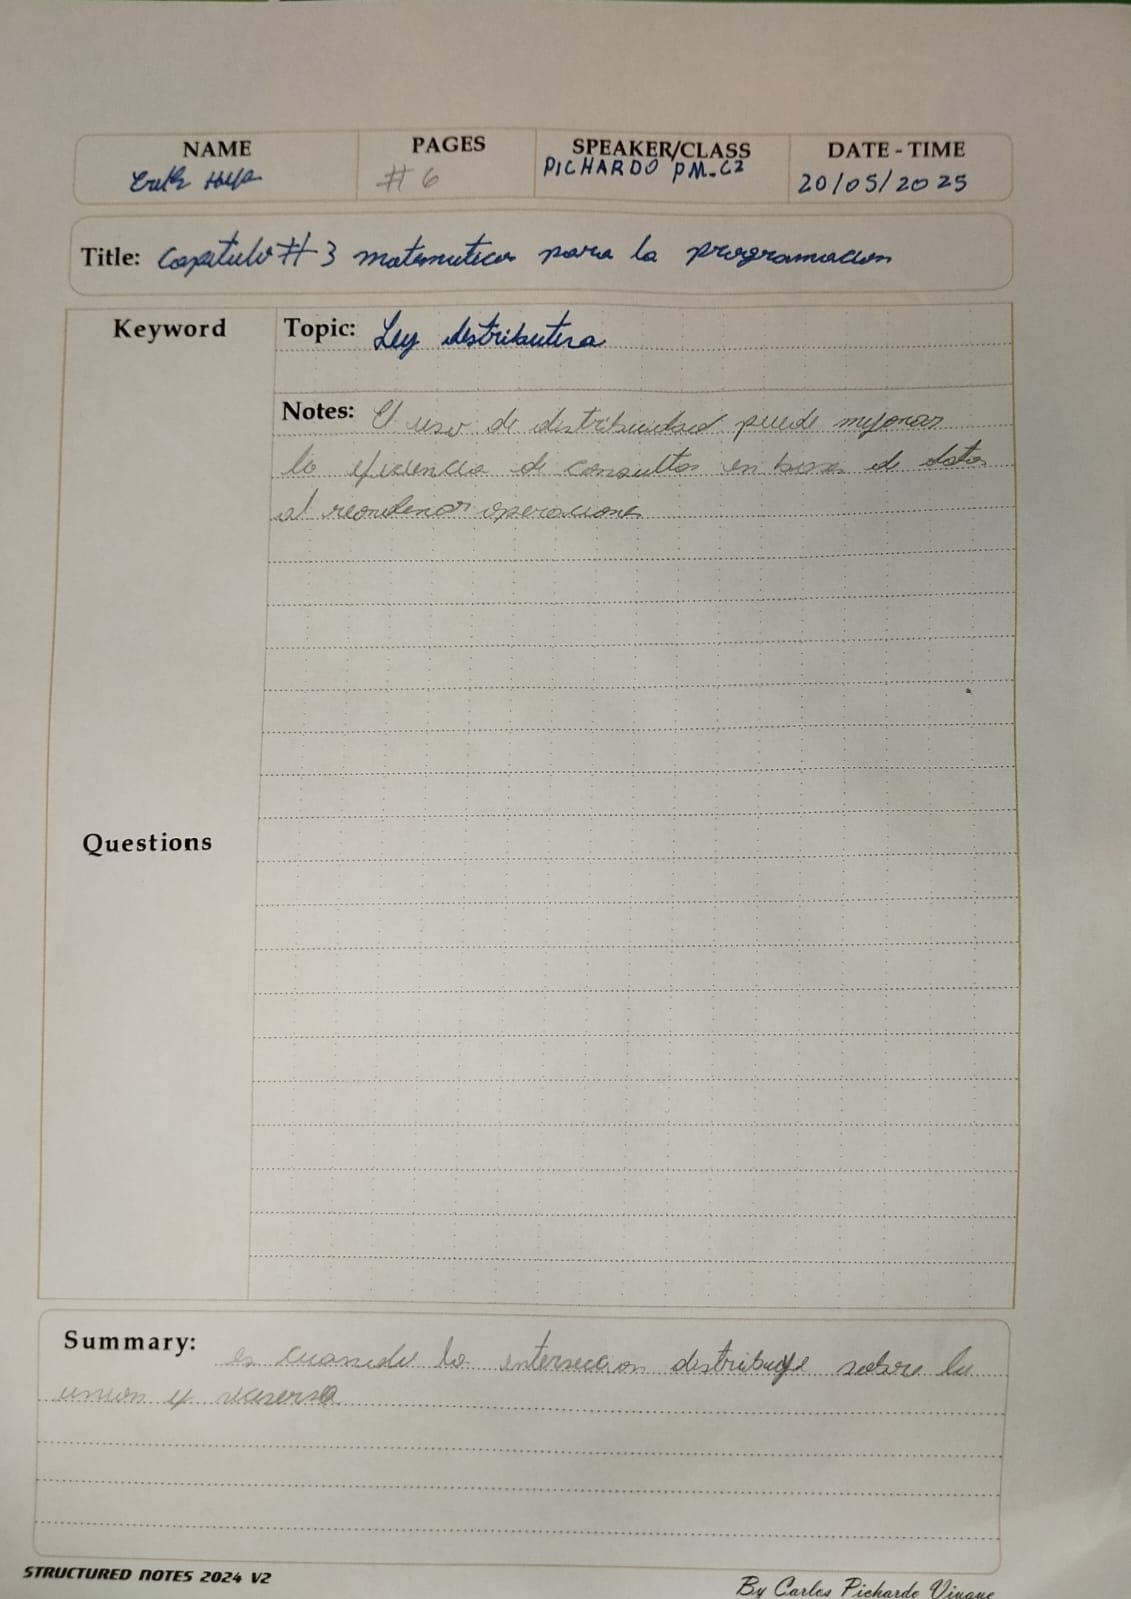 NAME PAGES SPEAKER/CLASS DATE - TIME
# 6 PICHARDO PM-C2 20/05/2025
Title: Capitulo # 3 matematicas para la programacion
Keyword Topic: Ley distributiva
Notes: El uso de distribuidad puede mejorar
la eficiencia de consultas en bases de datos
al reordenar operaciones
Questions
Summary: es cuando la interseccion distribuye sobre la
union y
STRUCTURED NOTES 2024 V2
By Carlos Pichardo Viuque